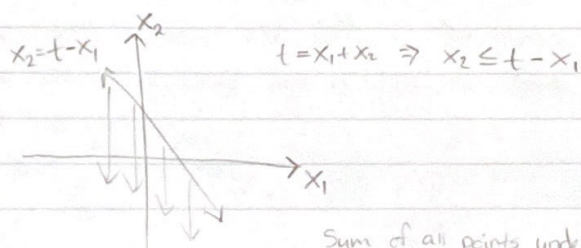 x₂
x₂=t-x₁
t=x₁+x₂ ⇒ x₂≤t-x₁
x₁
Sum of all points